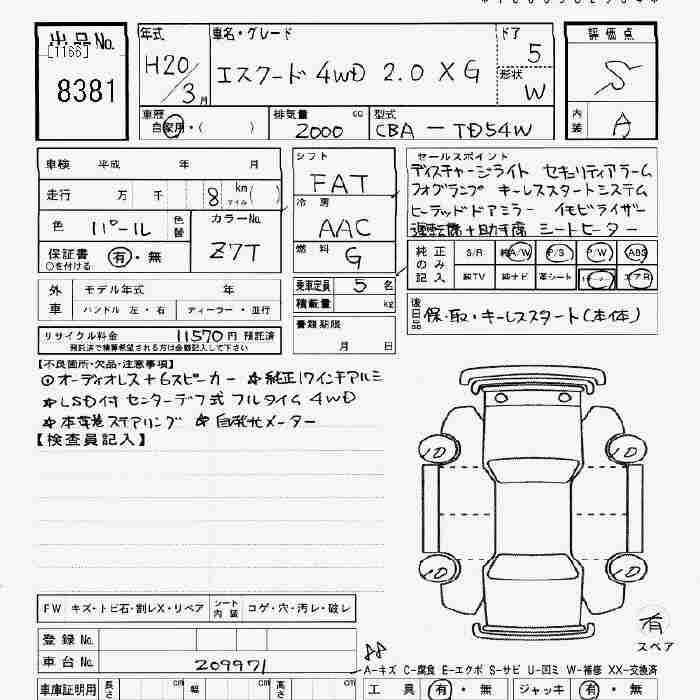 出品No.
[1166]
8381
年式
H20/3月
車名・グレード
エスクード 4WD 2.0 XG
ドア
5
形状
W
評価点
S
内装
A
車歴
自家用・( )
排気量 cc
2000
型式
CBA-TD54W
車検 平成 年 月
走行 万 千 8 km マイル ( )
色 パール 色替
カラーNo.
Z7T
保証書 有・無
○を付ける
シフト
FAT
冷房
AAC
燃料
G
セールスポイント
ディスチャージライト セキュリティアラーム
フォグランプ キーレススタートシステム
ヒーテッドドアミラー イモビライザー
運転席+助手席 シートヒーター
純正のみ記入
S/R 純A/W P/S P/W ABS
純TV 純ナビ 革シート エアB
外車
モデル年式 年
ハンドル 左・右 ディーラー・並行
乗車定員 5 名
積載量 kg
書類期限
月 日
後日品 保・取・キーレススタート(本体)
リサイクル料金 11570円 預託済
預託済で積算希望される方は金額記入して下さい
【不良箇所・欠品・注意事項】
◎オーディオレス+6スピーカー ☆純正17インチアルミ
☆LSD付センターデフ式フルタイム4WD
☆本革巻ステアリング ☆自発光メーター
【検査員記入】
10 10
10 10
有
スペア
FW キズ・トビ石・割レX・リペア シート内装 コゲ・穴・汚レ・破レ
登録No.
車台No. 209971
A-キズ C-腐食 E-エクボ S-サビ U-凹ミ W-補修 XX-交換済
車庫証明用 長さ cm 幅 cm 高さ cm
工具 有・無 ジャッキ 有・無